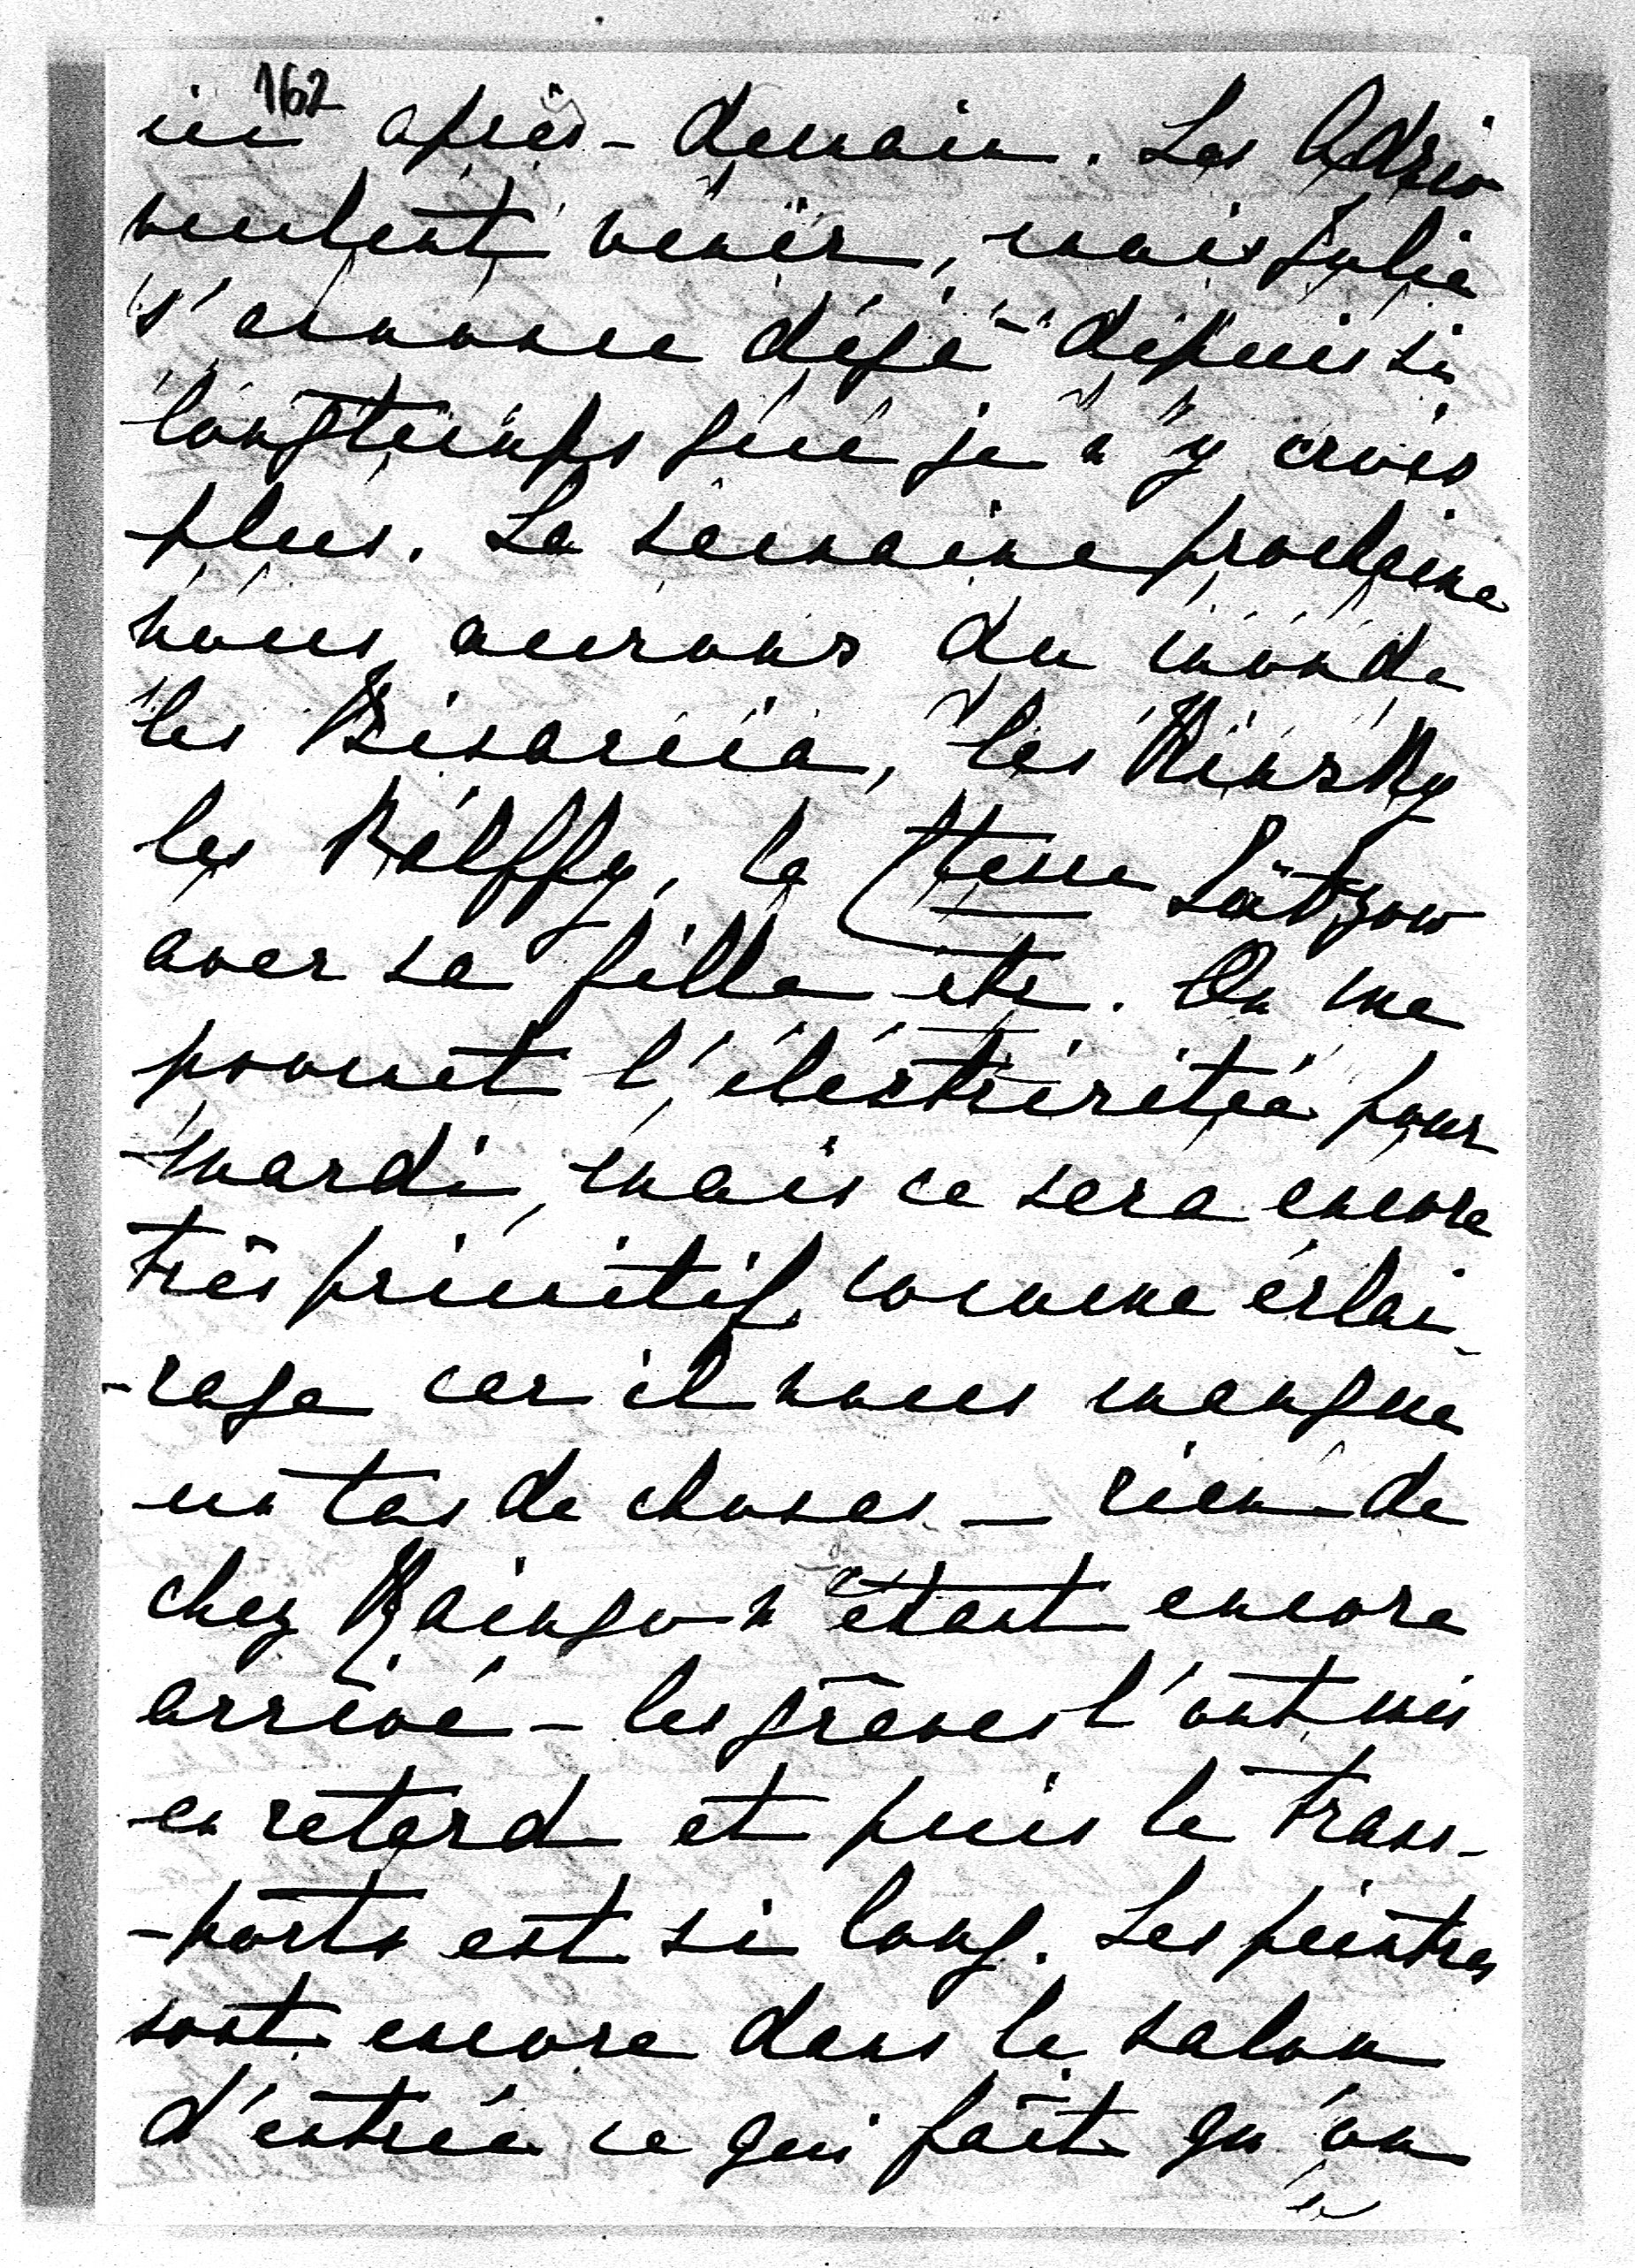 162
ici après-demain. Les Adzio
veulent venir, mais Julia
s'annonce déjà depuis si
longtemps que je n'y crois
plus. La semaine prochaine
nous aurons du monde
les Bisaccia, les Kinsky
les Pálffy, la Ctesse Lützow
avec sa fille etc. On me
promet l'électricitée pour
mardi, mais ce sera encore
très primitif comme éclai-
-rage car il nous manque
un tas de choses – rien de
chez Raingo n'étant encore
arrivé – les grèves l'ont mis
en retard et puis le trans-
-ports est si long. Les peintres
sont encore dans le salon
d'entrée ce qui fait qu'on